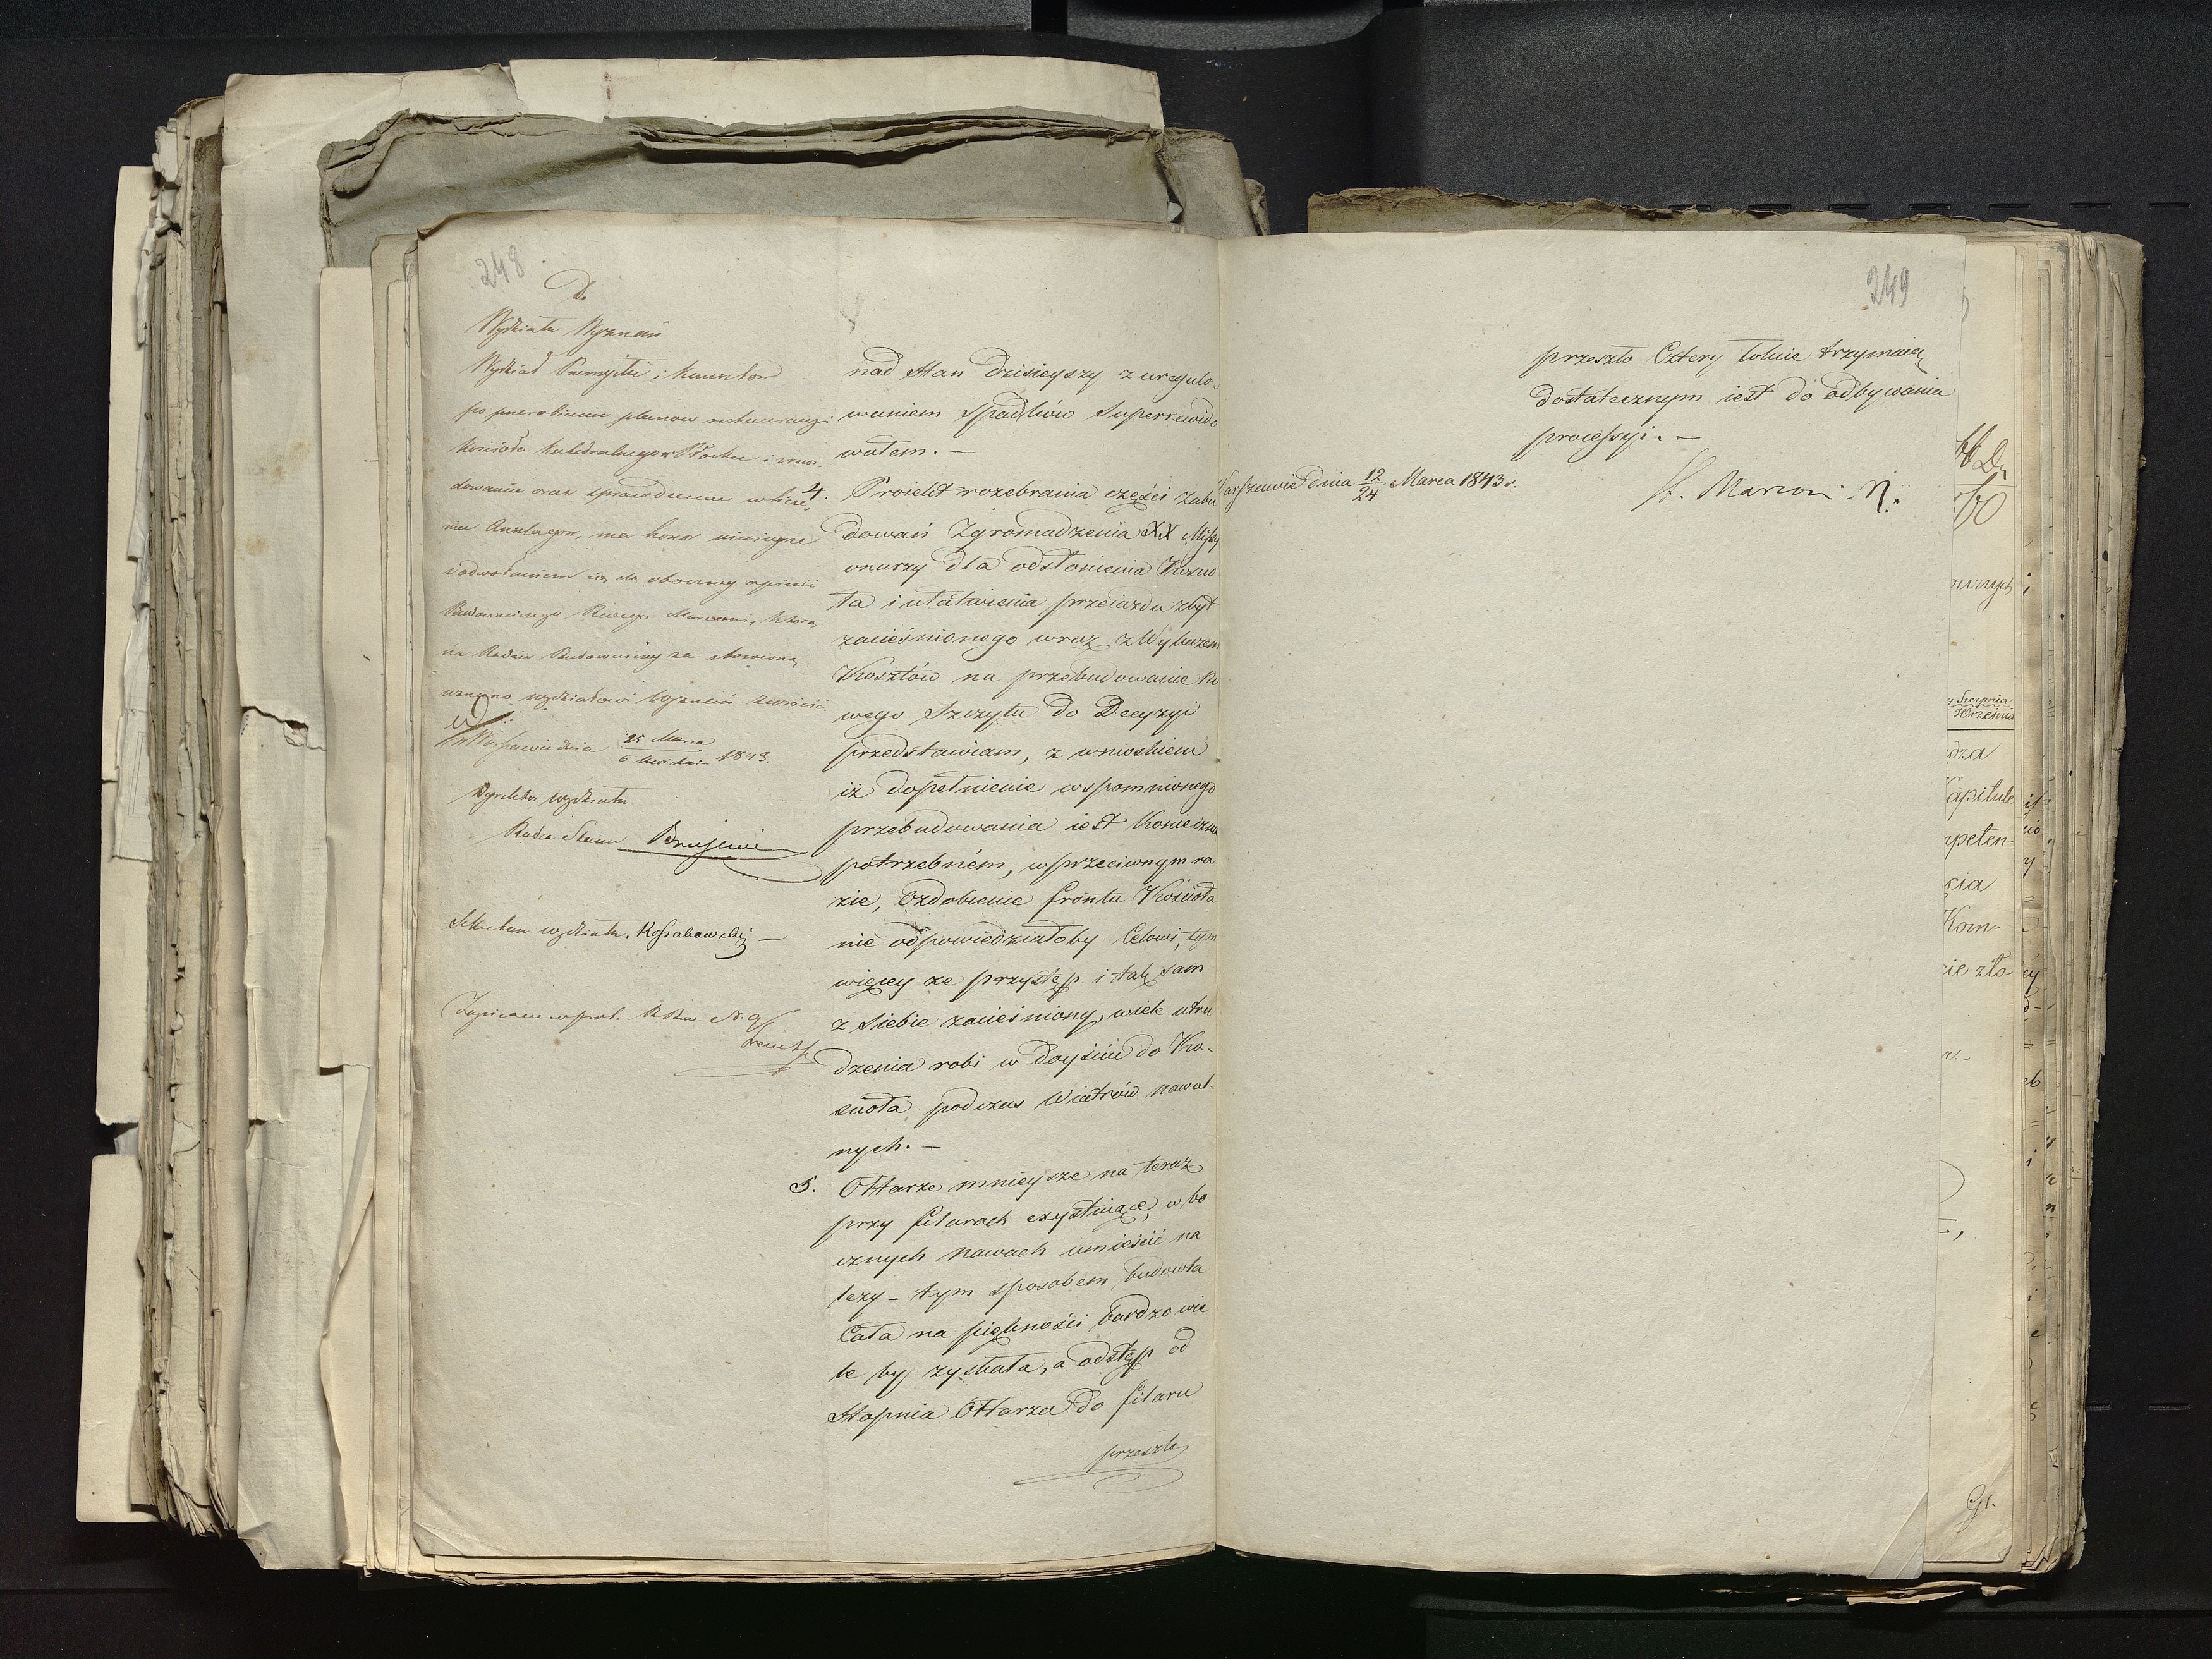 248
Do
Wydziału Wyznań
Wydział Przemysłu i Kunsztów
po przerobieniu planów restauracyi
Kościoła Katedralnego w Płocku i zrewi
dowaniu oraz sprawdzeniu w
niu Anszlagów, ma honor niniejsze
z odwołaniem się do obocznej opinii
Budowniczego Marconi, którą
na Radzie Budowniczej za stosowną
uznano wydziałowi wyznań zwrócić
w Warszawie dnia 25 Marca / 6 Kwietnia 1843.
Dyrektor wydziału
Radca Stanu
Sekretarz wydziału. Kossakowski
Zapisane w prot. R. Bud. N. 9
nad stan dzisieyszy z uregulo
waniem Spadków Superrewido
wałem. —
4. Proiekt rozebrania części Zabu
dowań Zgromadzenia XX Missy
onarzy dla odsłonienia Kościo
ła i ułatwienia przeiazdu zbyt
zacieśnionego wraz z Wykazem
Kosztów na przebudowanie No
wego Szczytu do Decyzyi
przedstawiam, z wnioskiem
iż dopełnienie wspomnionego
przebudowania iest Koniecznie
potrzebném, w przeciwnym ra
zie, Ozdobienie frontu Kościoła
nie odpowiedziałoby Celowi, tym
więcey że przystęp i tak sam
z Siebie zacieśniony, wiele utru
dzenia robi w Doyściu do Ko-
ścioła podczas Wiatrów nawał-
nych. —
5. Ołtarze mnieysze na teraz
przy filarach exystuiące, w bo
cznych nawach umieścić na
leży – tym sposobem budowla
Cała na piękności bardzo wie
le by zyskała, a odstęp od
Stopnia Ołtarza do filaru
przeszło
249
przeszło Cztery łokcie trzymaiący
dostatecznym iest do odbywania
processyi. —
Warszawie Dnia 12/24 Marca 1843 r.
H. Marconi
Sierpnia
Września
dza
Kapitule
mpeten-
cia
Kom-
cie zło-